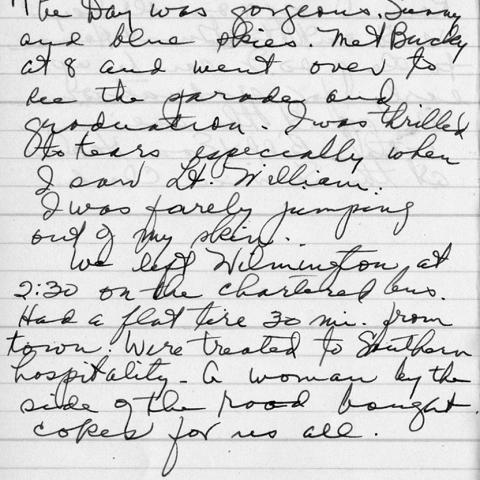 The Day was gorgeous. Sunny
and blue skies. Met Bucky
at 8 and went over to
see the parade and
graduation. I was thrilled
to tears especially when
I saw Lt. William.
I was farely jumping
out of my skin.
We left Wilmington at
2:30 on the chartered bus.
Had a flat tire 30 mi. from
town. Were treated to Southern
hospitality - A woman by the
side of the road bought
cokes for us all.